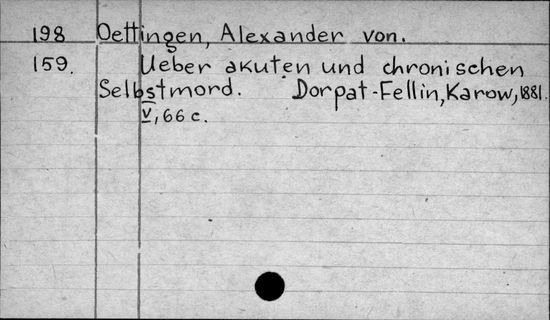 198 Oettingen, Alexander von.
159. Ueber akuten und chronischen
Selbstmord. Dorpat-Fellin, Karow, 1881.
V, 66 c.